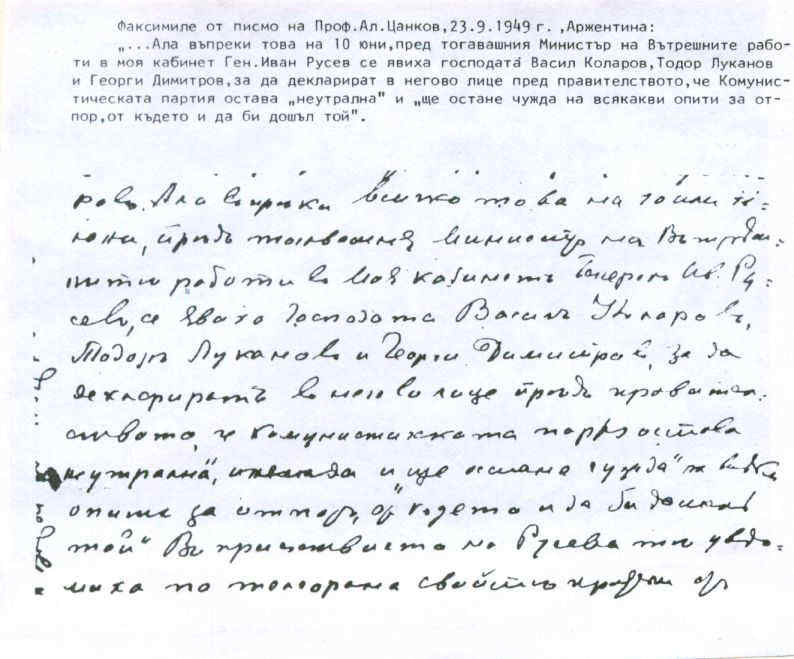 Факсимиле от писмо на Проф.Ал.Цанков,23.9.1949 г. ,Аржентина:
„...Ала въпреки това на 10 юни,пред тогавашния Министър на Вътрешните рабо-
ти в моя кабинет Ген.Иван Русев се явиха господата Васил Коларов,Тодор Луканов
и Георги Димитров,за да декларират в негово лице пред правителството,че Комунис-
тическата партия остава „неутрална" и „ще остане чужда на всякакви опити за от-
пор,от където и да би дошъл той".
Ала въпреки всичко това на 10 или 11
юни, предъ тогавашния Министър на Вътреш-
ните работи въ моя кабинетъ Генералъ Ив. Ру-
севъ, се явиха господата Василъ Коларовъ,
Тодоръ Лукановъ и Георги Димитровъ, за да
декларират въ негово лице предъ правител-
ството, че комунистическата остава
неутрална", и ще остане чужда"
опити за отпоръ, от където и да би дошълъ
той" Въ присъствието на Русева те уведо-
миха по телеграма своите